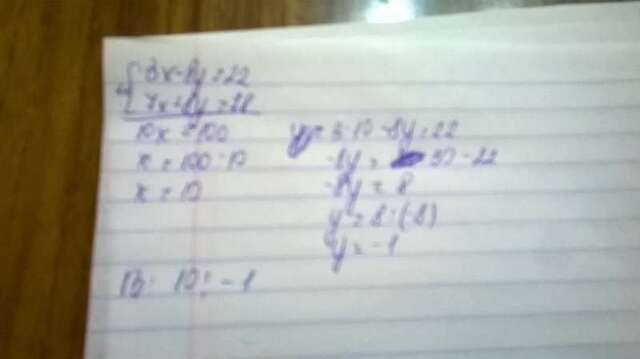 3x-8y=22
7x+8y=28
10x=100
x=100:10
x=10
y= 3·10-8y=22
-8y= 30-22
-8y=8
y=8:(-8)
y=-1
В: 10; -1